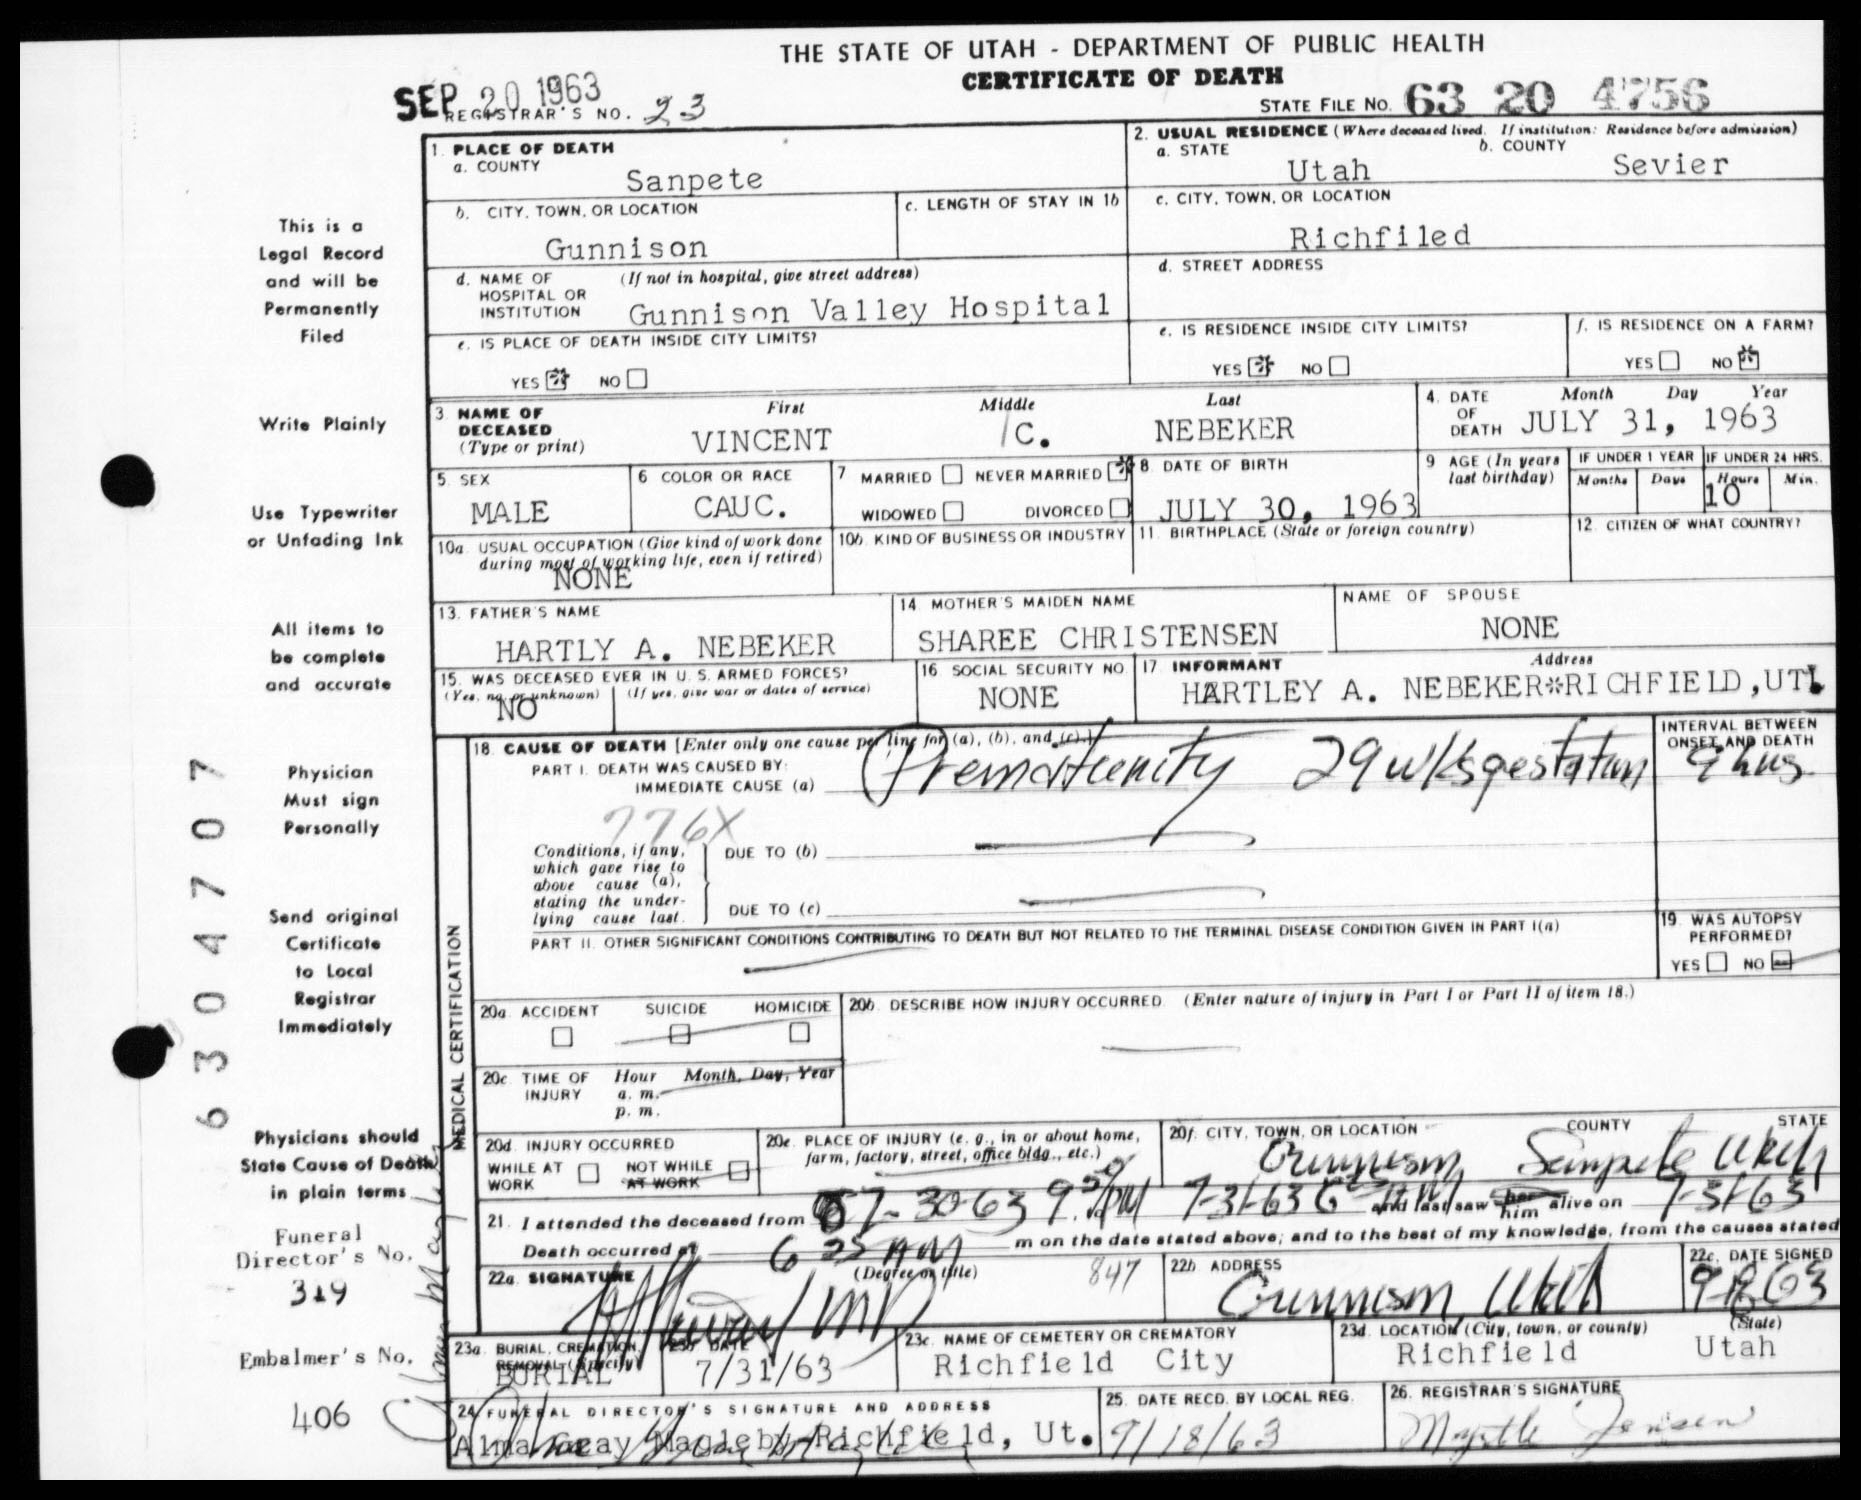 THE STATE OF UTAH - DEPARTMENT OF PUBLIC HEALTH
CERTIFICATE OF DEATH
SEP 20 1963
REGISTRAR'S NO. 23
STATE FILE NO. 63 20 4756
1. PLACE OF DEATH
a. COUNTY
Sanpete
2. USUAL RESIDENCE (Where deceased lived. If institution: Residence before admission)
a. STATE
Utah
b. COUNTY
Sevier
b. CITY, TOWN, OR LOCATION
Gunnison
c. LENGTH OF STAY IN 1b
c. CITY, TOWN, OR LOCATION
Richfiled
d. NAME OF HOSPITAL OR INSTITUTION
(If not in hospital, give street address)
Gunnison Valley Hospital
d. STREET ADDRESS
e. IS PLACE OF DEATH INSIDE CITY LIMITS?
YES NO
e. IS RESIDENCE INSIDE CITY LIMITS?
YES NO
f. IS RESIDENCE ON A FARM?
YES NO
3 NAME OF DECEASED
(Type or print)
First Middle Last
VINCENT C. NEBEKER
4. DATE OF DEATH
Month Day Year
JULY 31, 1963
5. SEX
MALE
6 COLOR OR RACE
CAUC.
7 MARRIED NEVER MARRIED
WIDOWED DIVORCED
8. DATE OF BIRTH
JULY 30, 1963
9 AGE (In years last birthday)
IF UNDER 1 YEAR
Months Days
IF UNDER 24 HRS.
Hours Min.
10
10a. USUAL OCCUPATION (Give kind of work done during most of working life, even if retired)
NONE
10b. KIND OF BUSINESS OR INDUSTRY
11. BIRTHPLACE (State or foreign country)
12. CITIZEN OF WHAT COUNTRY?
13. FATHER'S NAME
HARTLY A. NEBEKER
14 MOTHER'S MAIDEN NAME
SHAREE CHRISTENSEN
NAME OF SPOUSE
NONE
15. WAS DECEASED EVER IN U. S. ARMED FORCES?
(Yes, no, or unknown) (If yes, give war or dates of service)
NO
16 SOCIAL SECURITY NO.
NONE
17 INFORMANT Address
HARTLEY A. NEBEKER*RICHFIELD,UT.
MEDICAL CERTIFICATION
18. CAUSE OF DEATH [Enter only one cause per line for (a), (b), and (c).]
PART I. DEATH WAS CAUSED BY:
IMMEDIATE CAUSE (a)
Prematurity 29 wks gestation
INTERVAL BETWEEN ONSET AND DEATH
9 hrs.
776X
Conditions, if any, which gave rise to above cause (a), stating the underlying cause last.
DUE TO (b)
DUE TO (c)
PART II. OTHER SIGNIFICANT CONDITIONS CONTRIBUTING TO DEATH BUT NOT RELATED TO THE TERMINAL DISEASE CONDITION GIVEN IN PART I(a)
19. WAS AUTOPSY PERFORMED?
YES NO
20a. ACCIDENT SUICIDE HOMICIDE
20b. DESCRIBE HOW INJURY OCCURRED. (Enter nature of injury in Part I or Part II of item 18.)
20c. TIME OF INJURY
Hour Month, Day, Year
a. m.
p. m.
20d. INJURY OCCURRED
WHILE AT WORK NOT WHILE AT WORK
20e. PLACE OF INJURY (e. g., in or about home, farm, factory, street, office bldg., etc.)
20f. CITY, TOWN, OR LOCATION COUNTY STATE
Gunnison, Sanpete Utah
21. I attended the deceased from 7-30-63 9 PM 7-31-63 and last saw her him alive on 7-31-63
Death occurred at 6 25 AM m on the date stated above; and to the best of my knowledge, from the causes stated
22a. SIGNATURE (Degree or title)
MD
847
22b. ADDRESS
Gunnison, Utah
22c. DATE SIGNED
23a. BURIAL, CREMATION, REMOVAL (Specify)
BURIAL
23b. DATE
7/31/63
23c. NAME OF CEMETERY OR CREMATORY
Richfield City
23d. LOCATION (City, town, or county) (State)
Richfield Utah
24 FUNERAL DIRECTOR'S SIGNATURE AND ADDRESS
Alma Gray Magleby-Richfield, Ut.
25. DATE RECD. BY LOCAL REG.
9/18/63
26. REGISTRAR'S SIGNATURE
Myrtle Jensen
This is a
Legal Record
and will be
Permanently
Filed
Write Plainly
Use Typewriter
or Unfading Ink
All items to
be complete
and accurate
Physician
Must sign
Personally
Send original
Certificate
to Local
Registrar
Immediately
Physicians should
State Cause of Death
in plain terms
Funeral
Director's No.
319
Embalmer's No.
406
6304707